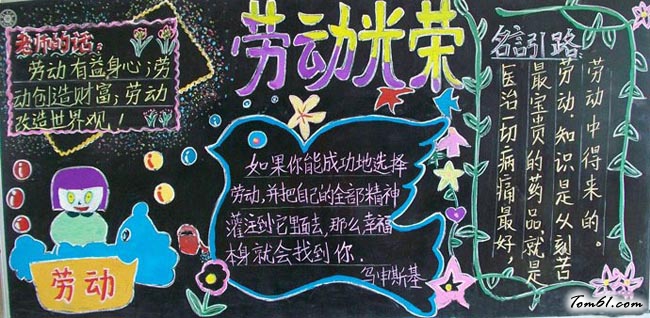 劳动光荣
老师的话:
劳动有益身心;劳
动创造财富;劳动
改造世界观!
劳动
如果你能成功地选择
劳动,并把自己的全部精神
灌注到它里面去,那么幸福
本身就会找到你.
乌申斯基
名言引路:
医治一切病痛最好,
最宝贵的药品就是
劳动.知识是从刻苦
劳动中得来的。
Tom61.com